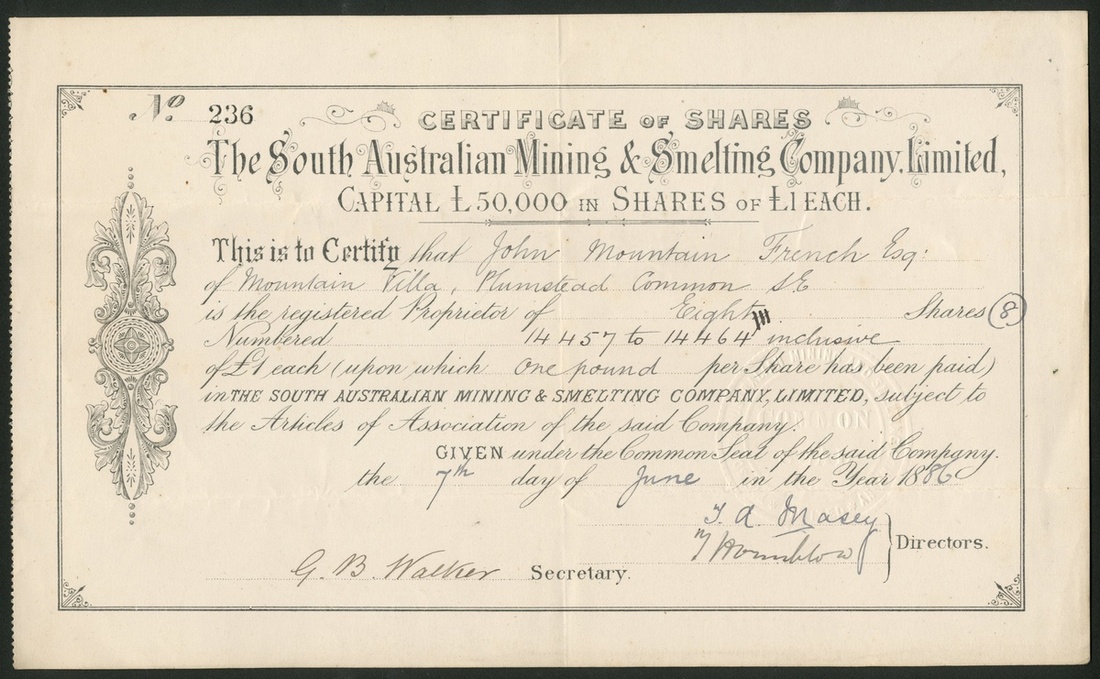 No. 236
CERTIFICATE OF SHARES
The South Australian Mining & Smelting Company, Limited,
CAPITAL £50,000 IN SHARES OF £1 EACH.
This is to Certify that John Mountain French Esq:
of Mountain Villa, Plumstead Common S.E
is the registered Proprietor of Eight Shares (8)
Numbered 14457 to 14464 inclusive
of £1 each (upon which one pound per Share has been paid)
in THE SOUTH AUSTRALIAN MINING & SMELTING COMPANY, LIMITED, subject to
the Articles of Association of the said Company.
GIVEN under the Common Seal of the said Company.
the 7th day of June in the Year 1886
Directors.
G. B. Walker Secretary.